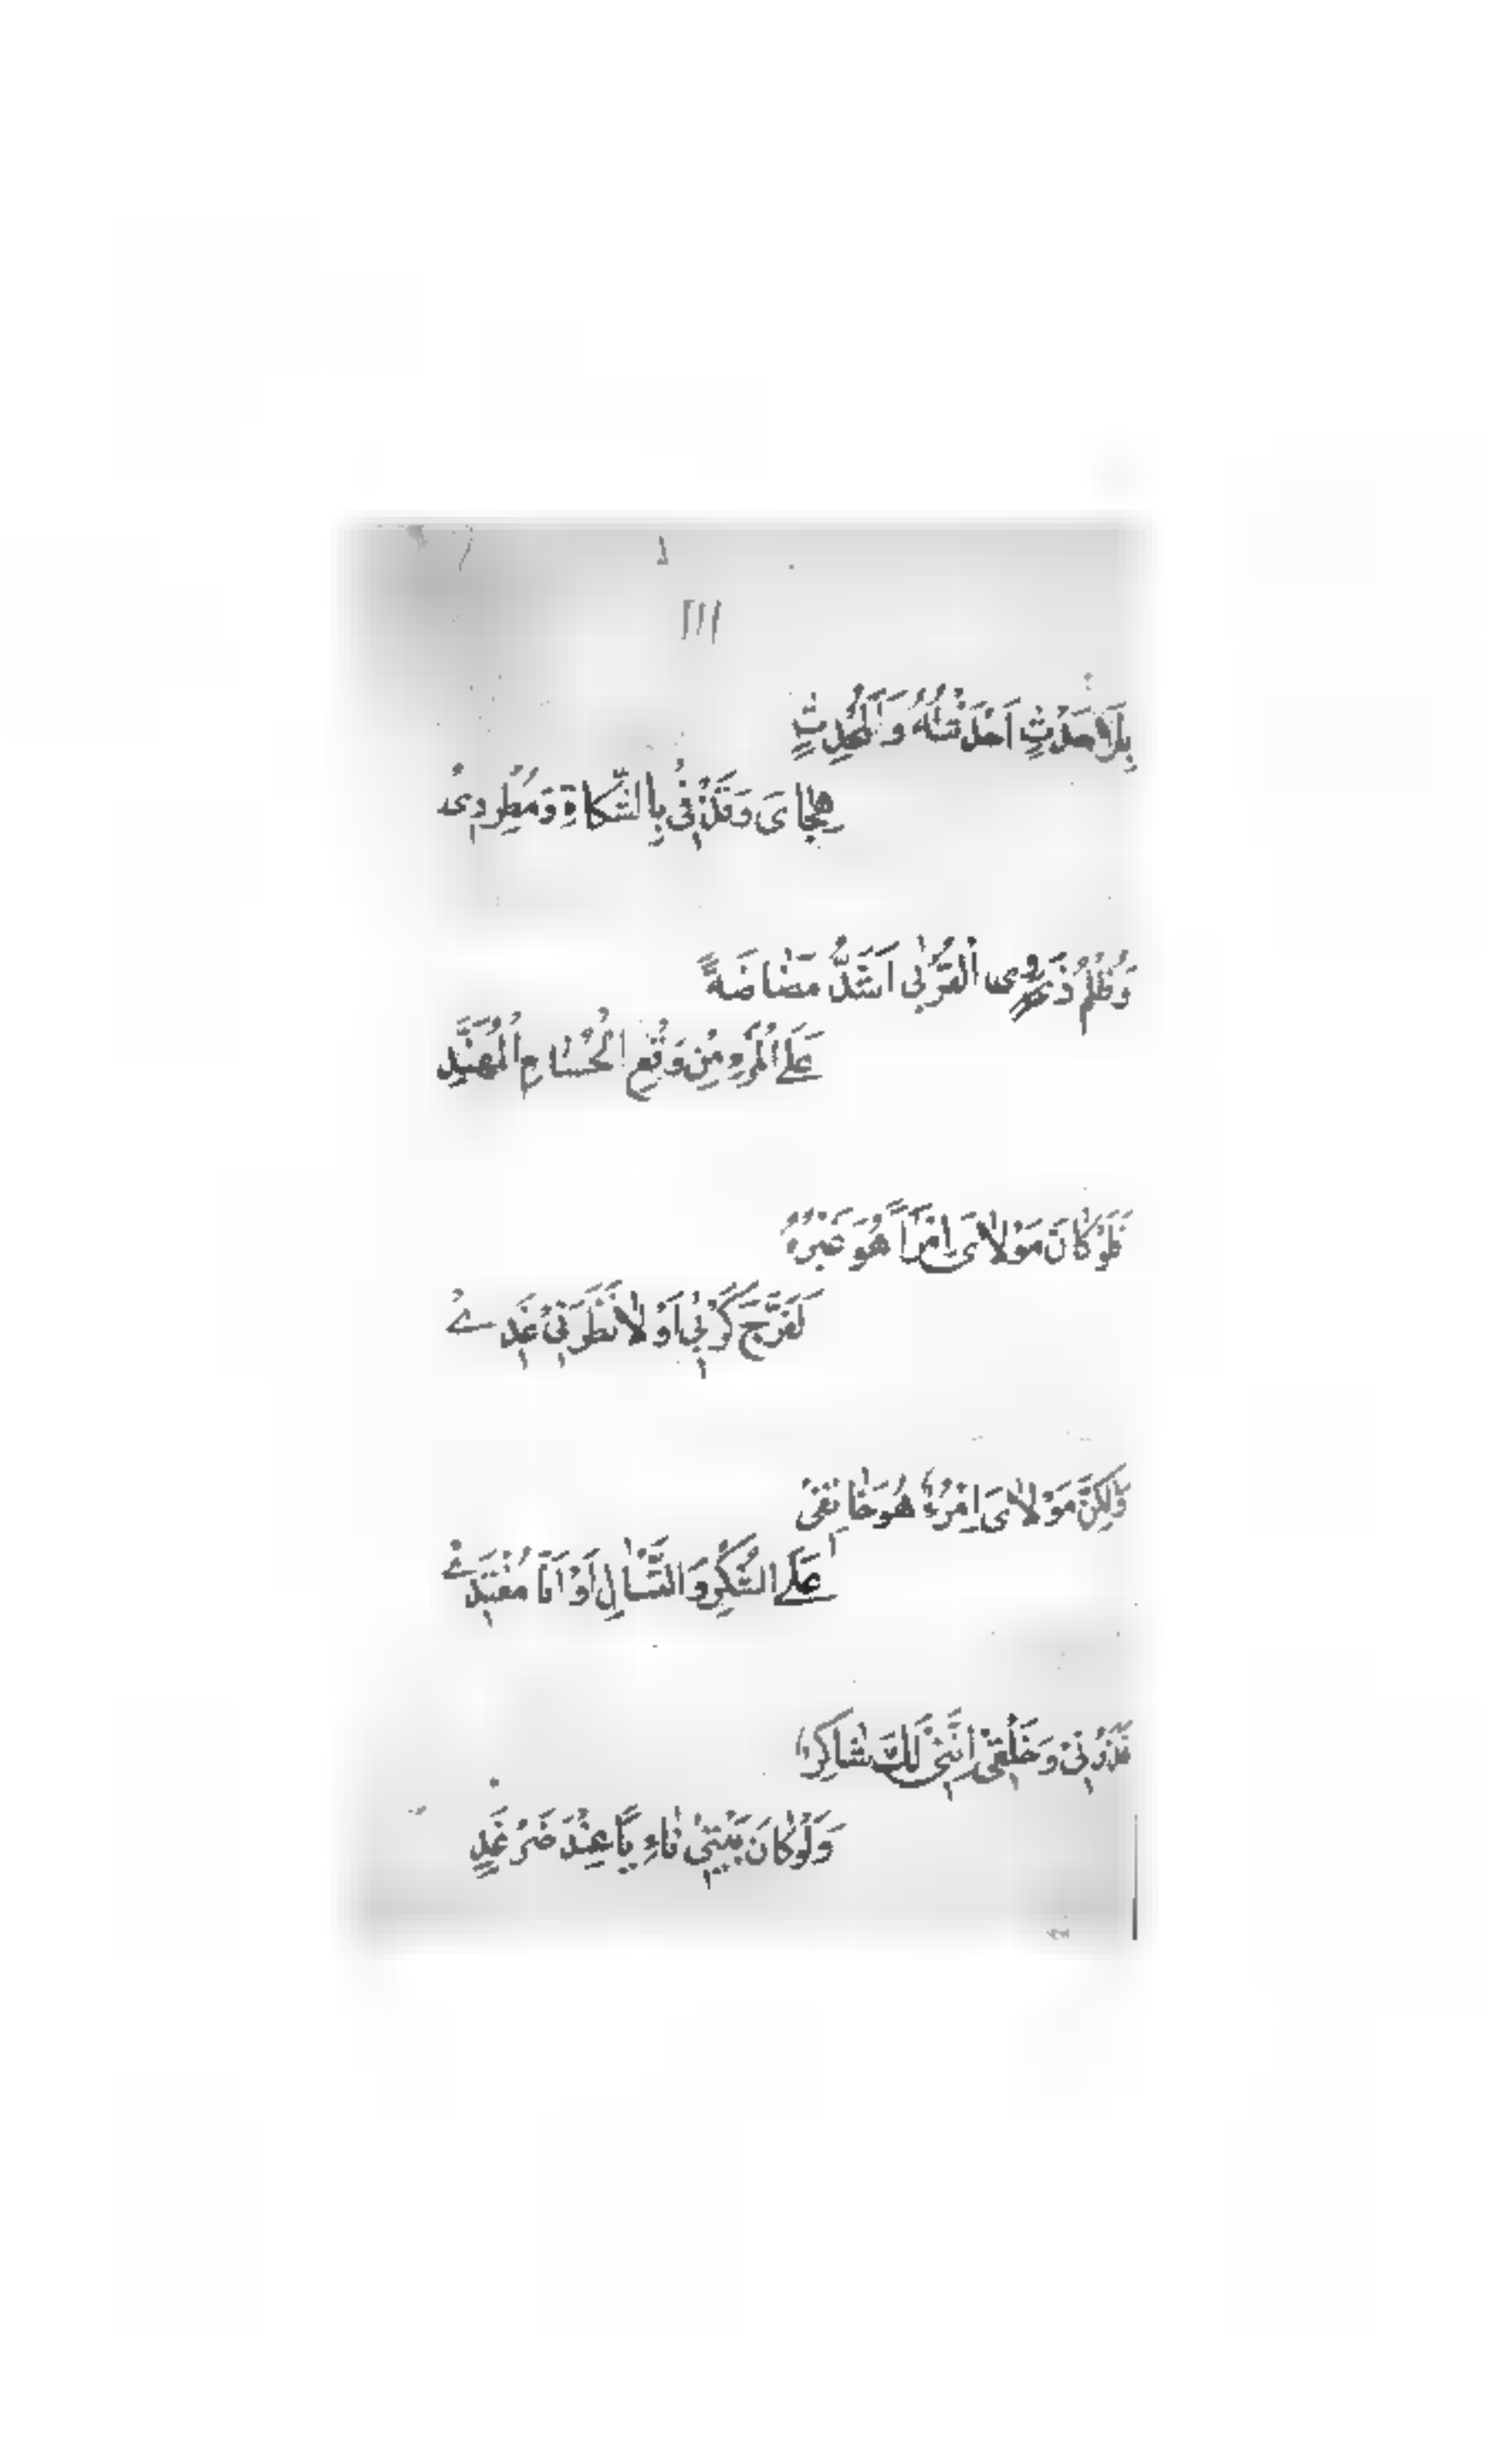 بِلَا حَدَثٍ اَحْدَثْتُهُ وَكَمُحْدِثٍ
هِجَاىَ وَقَذْفِى بِالشَّكَاةِ وَمُطْرَدِىْ
وَظُلْمُ ذَوِى الْقُرْبٰى اَشَدُّ مَضَاضَةً
عَلَى الْمَرْءِ مِنْ وَقْعِ الْحُسَامِ الْمُهَنَّدِ
فَلَوْ كَانَ مَوْلَاىَ امْرَأً هُوَ غَيْرُهُ
لَفَرَّجَ كَرْبِىْ اَوْ لَاَنْظَرَنِىْ غَدِىْ
وَلٰكِنَّ مَوْلَاىَ امْرُءٌ هُوَ خَانِقِىْ
عَلَى الشُّكْرِ وَالتَّسْاٰلِ اَوْ اَنَا مُفْتَدِىْ
فَذَرْنِىْ وَخُلْقِىْ اِنَّنِىْ لَكَ شَاكِرٌ
وَلَوْ كَانَ بَيْتِىْ نَاءِيًا عِنْدَ ضَرْغَدٍ